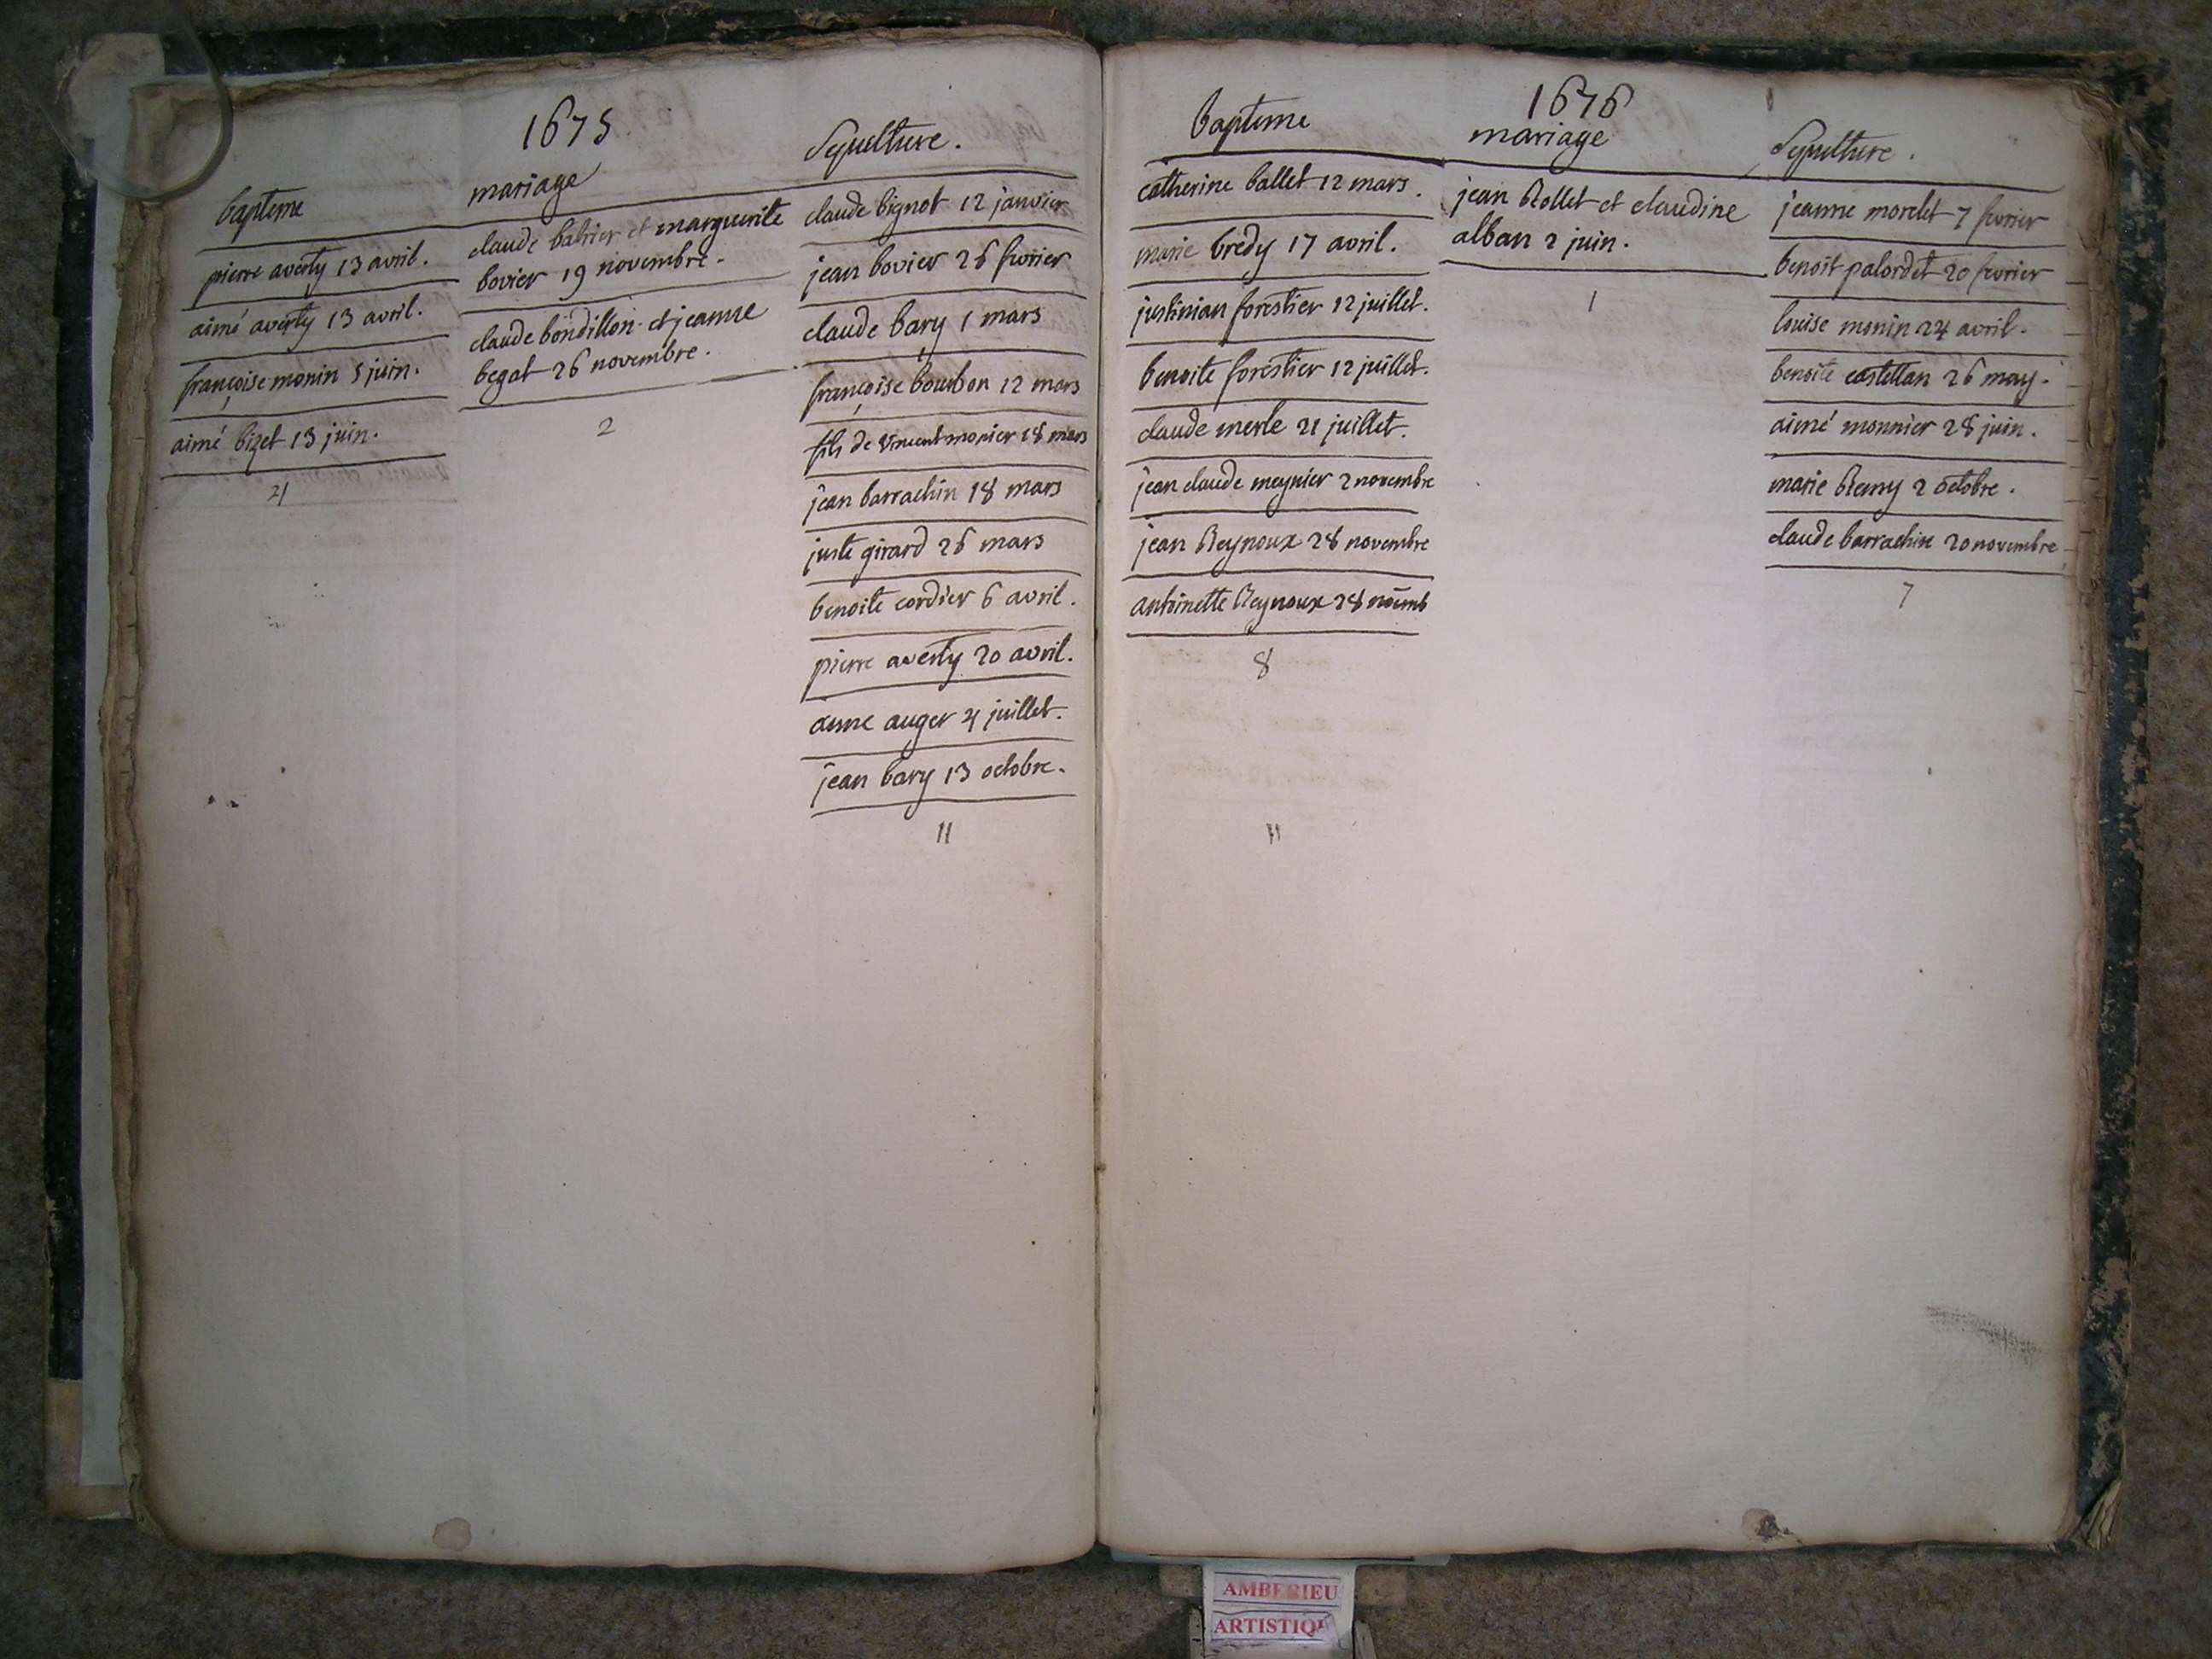 1675
bapteme
pierre averty 13 avril.
aimé averty 13 avril.
françoise monin 5 juin.
aimé bizet 13 juin.
4
mariage
claude balrier et marguerite
bovier 19 novembre.
claude bondillon et jeanne
begat 26 novembre.
2
Sepulture.
claude bignot 12 janvier
jean bovier 26 fevrier
claude bary 1 mars
françoise bourbon 12 mars
fils de vincent monier 18 mars
jean barrachin 18 mars
juste girard 26 mars
benoite cordier 6 avril.
pierre averty 20 avril.
anne auger 4 juillet.
jean bary 13 octobre.
11
1676
bapteme
catherine ballet 12 mars.
marie bredy 17 avril.
justinian forestier 12 juillet.
benoite forestier 12 juillet.
claude merle 21 juillet.
jean claude meynier 2 novembre
jean Reynoux 28 novembre
antoinette Reynoux 28 novemb
8
mariage
jean Rollet et claudine
alban 2 juin.
1
Sepulture.
jeanne morelet 7 fevrier
benoit palordet 20 fevrier
louise monin 24 avril.
benoite castellan 26 may.
aimé monnier 28 juin.
marie Remy 2 octobre.
claude barrachin 20 novembre
7
AMBERIEU
ARTISTIQU